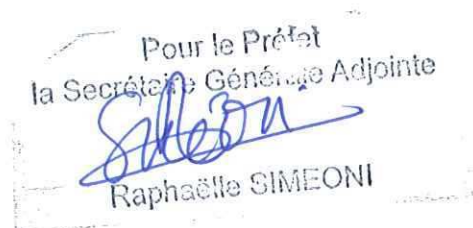 Pour le Préfet
la Secrétaire Générale Adjointe
Simeoni
Raphaëlle SIMEONI